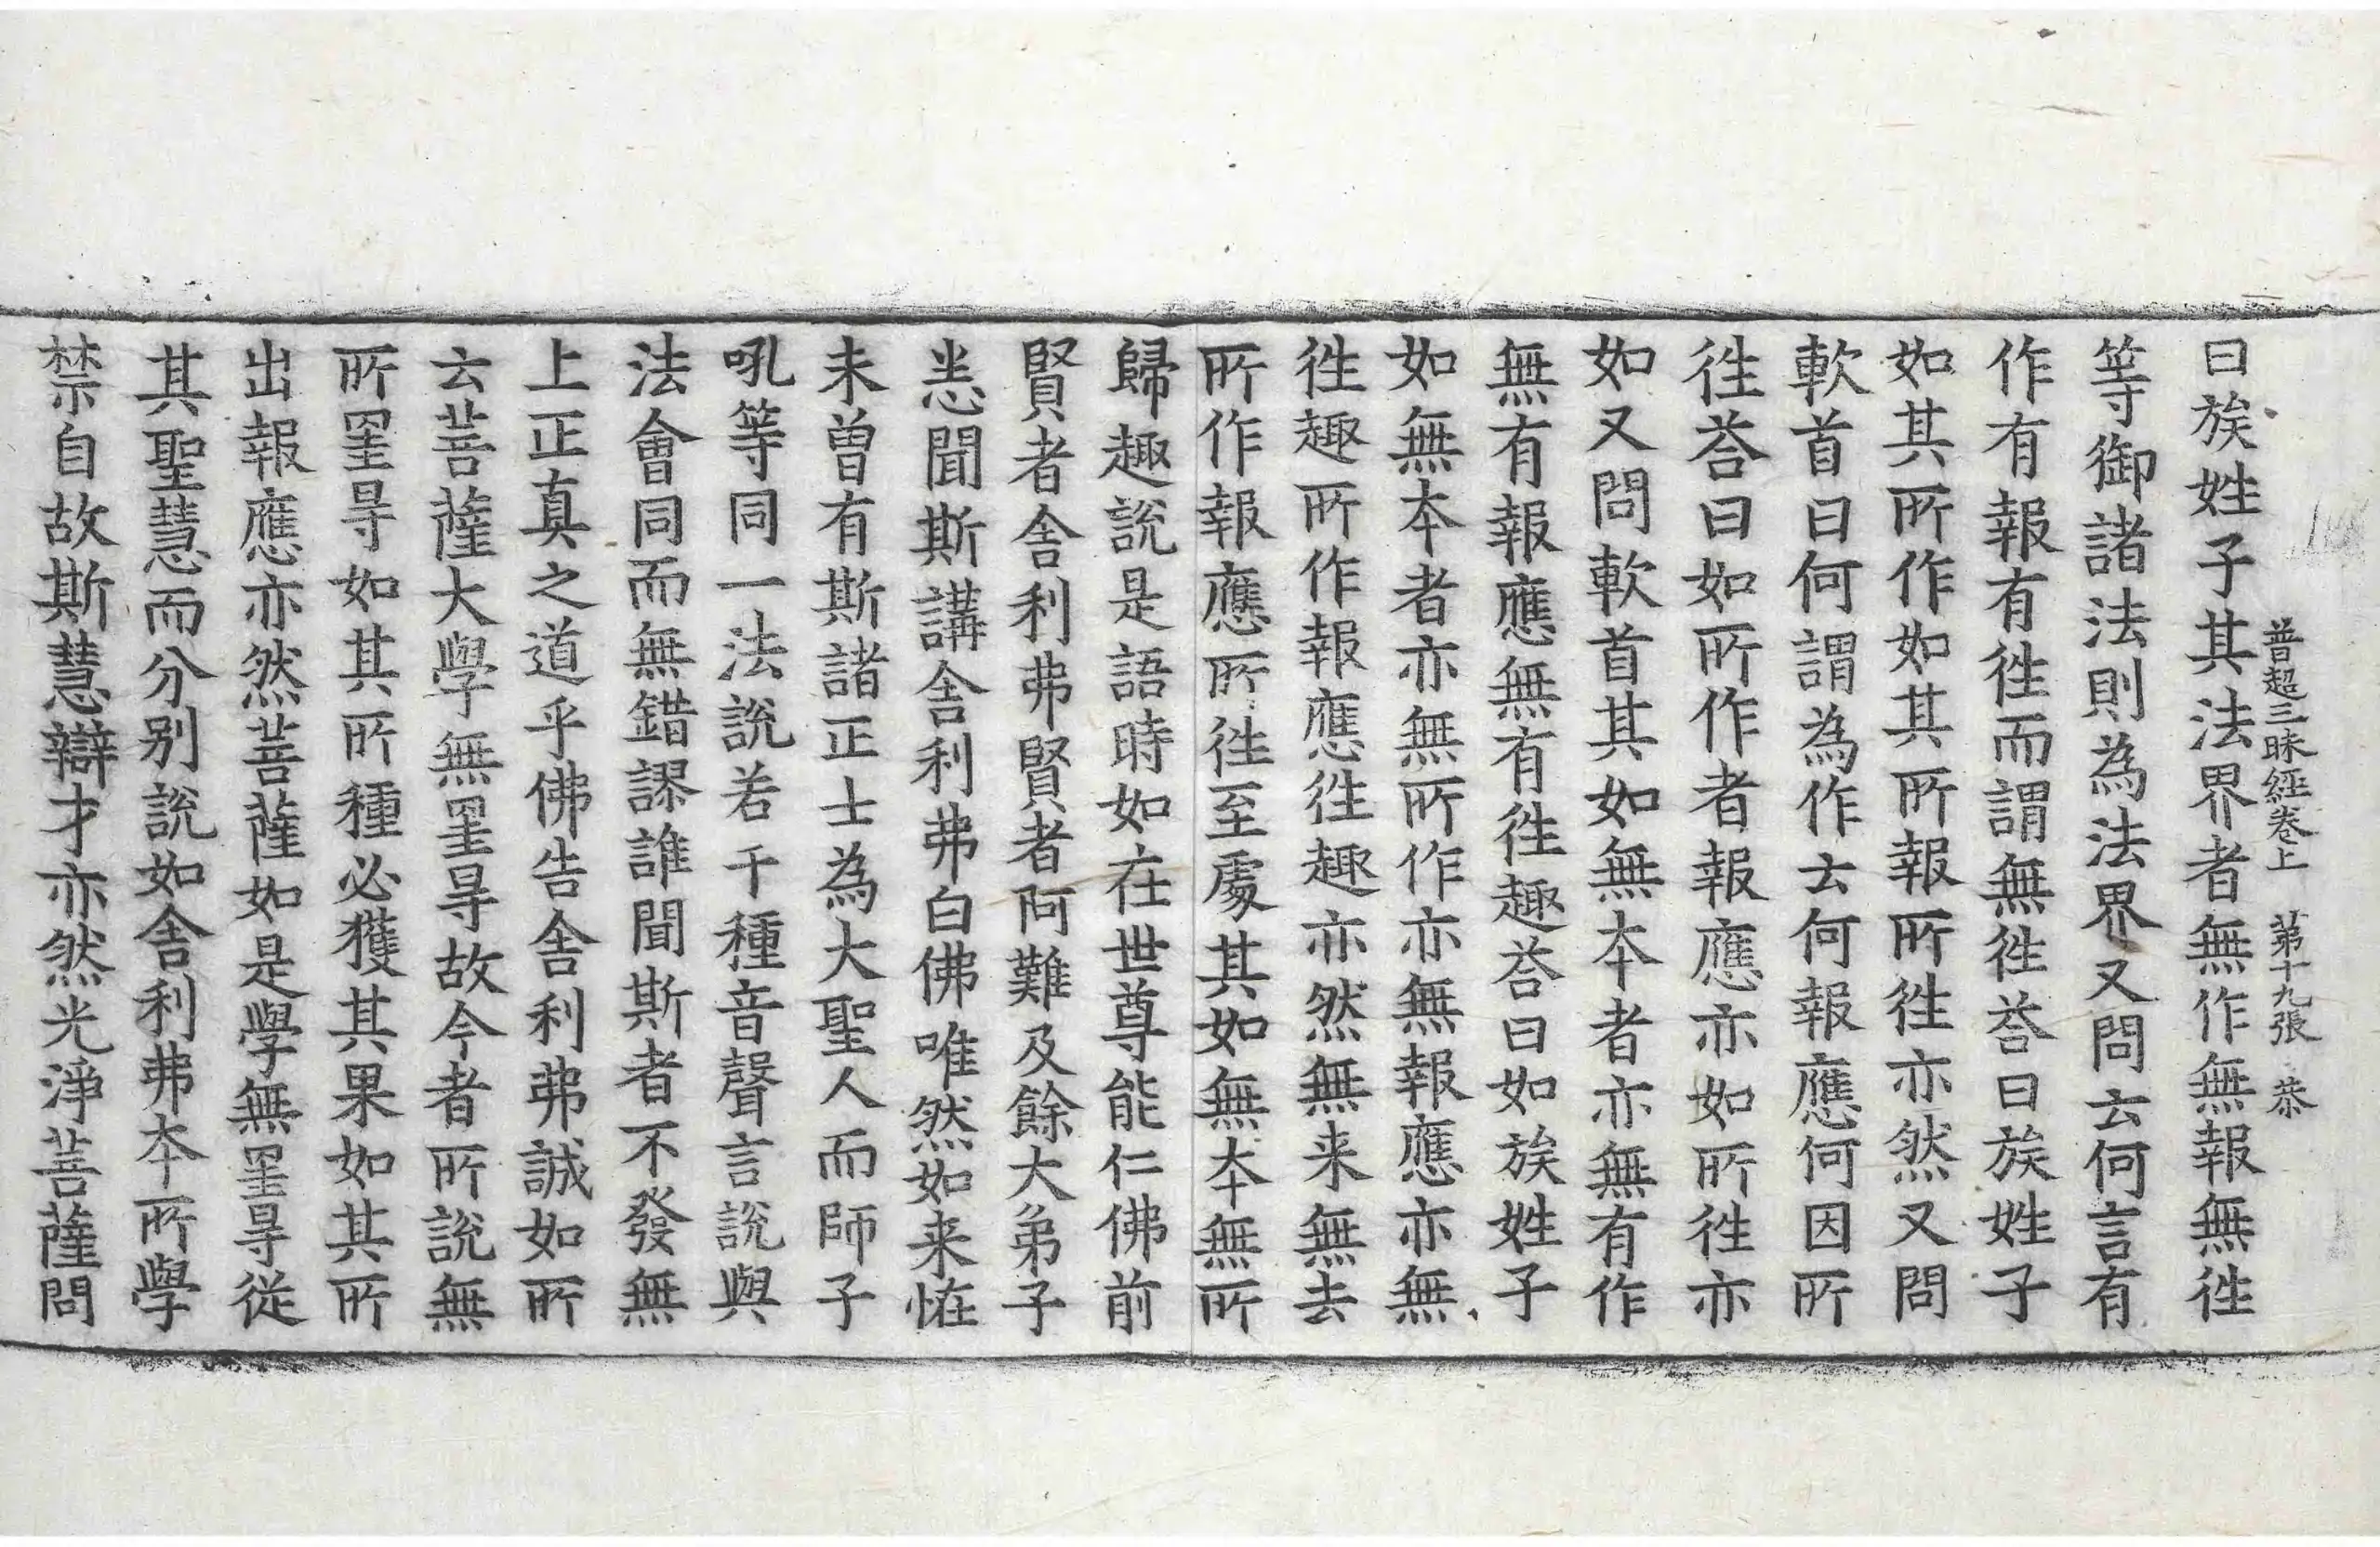 普超三昧經卷上　第十九張　恭
曰族姓子其法界者無作無報無徃
等御諸法則為法界又問云何言有
作有報有徃而謂無徃荅曰族姓子
如其所作如其所報所徃亦然又問
軟首曰何謂為作云何報應何因所
徃荅曰如所作者報應亦如所徃亦
如又問軟首其如無夲者亦無有作
無有報應無有徃趣荅曰如族姓子
如無夲者亦無所作亦無報應亦無
徃趣所作報應徃趣亦然無来無去
所作報應所徃至處其如無夲無所
歸趣說是語時如在世尊能仁佛前
賢者舍利弗賢者阿難及餘大弟子
悉聞斯講舍利弗白佛唯然如来恠
未曽有斯諸正士為大聖人而師子
吼等同一法說若干種音聲言說與
法會同而無錯謬誰聞斯者不發無
上正真之道乎佛告舍利弗誠如所
云菩薩大學無罣㝵故今者所說無
所罣㝵如其所種必獲其果如其所
出報應亦然菩薩如是學無罣㝵從
其聖慧而分别說如舍利弗夲所學
禁自故斯慧辯才亦然光淨菩薩問